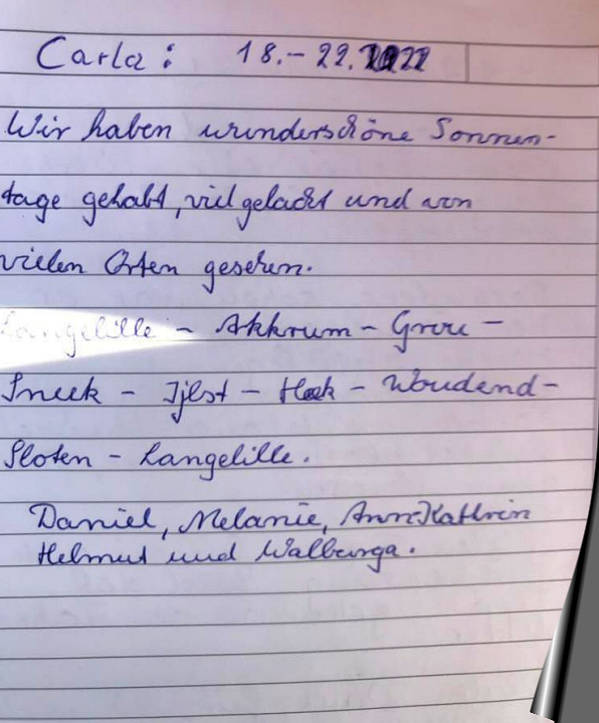 Carla: 18.-22.2022
Wir haben wunderschöne Sonnen-
tage gehabt, viel gelacht und von
vielen Orten gesehen.
Langelille - Akkrum - Grou -
Sneek - Ijlst - Heek - Woudend-
Sloten - Langelille.
Daniel, Melanie, Ann-Kathrin
Helmut und Walburga.